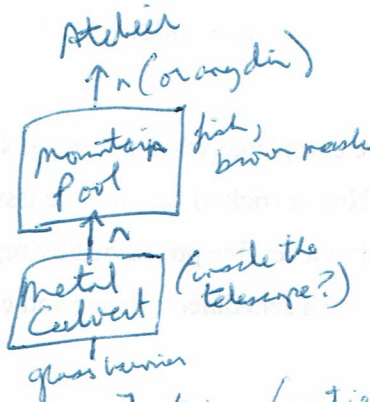 Atelier
n (or any dir)
Mountain
Pool
fish,
brown mask
n
Metal
Culvert
(inside the
telescope?)
glass barrier